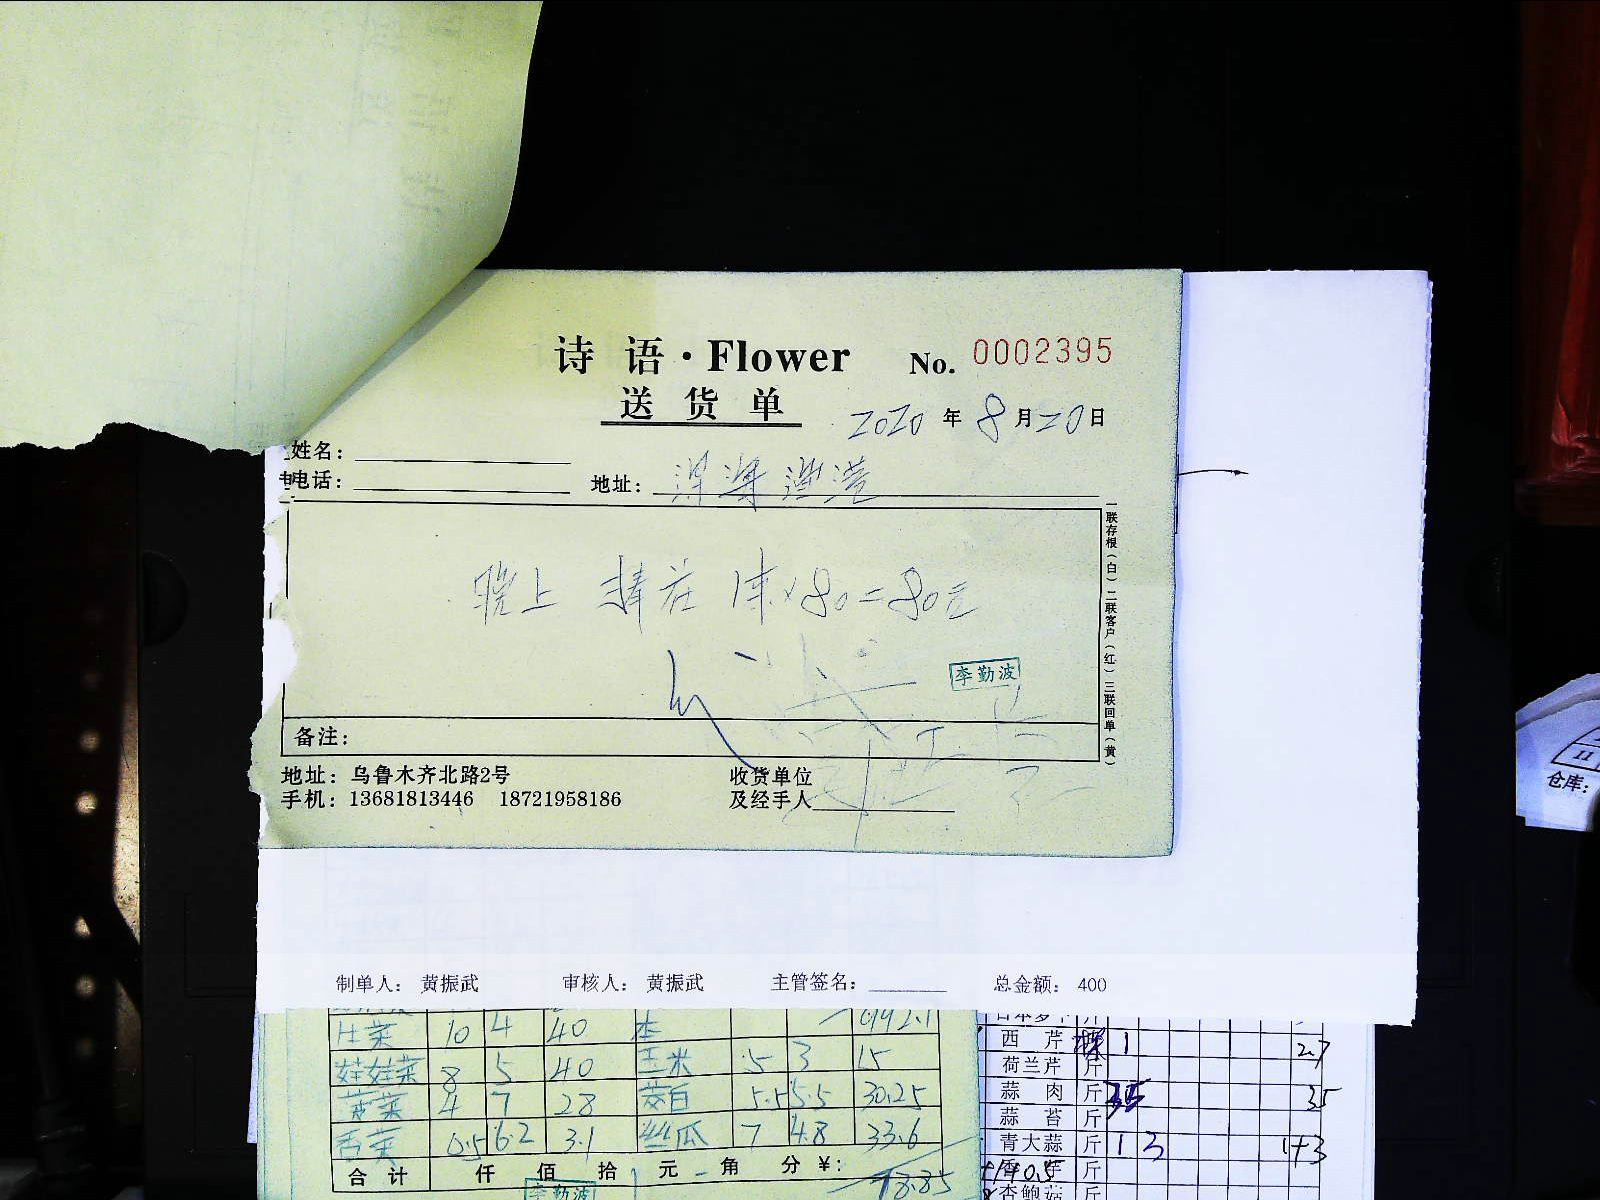 诗 语·Flower No. 0002395
送 货 单 2020 年 8 月 20 日
姓名:
电话: 地址: 深海渔港
晚上 捧花 1束×80=80元
李勤波
备注:
地址: 乌鲁木齐北路2号 收货单位
手机: 13681813446 18721958186 及经手人
一联存根(白)二联客户(红)三联回单(黄)
仓库:
11
制单人: 黄振武 审核人: 黄振武 主管签名: 总金额: 400
10 4 40
娃娃菜 8 5 40 玉米 5 3 15
4 7 28 茭白 5.5 5.5 30.25
0.5 6.2 3.1 丝瓜 7 4.8 33.6
合 计 仟 佰 拾 元 角 分 ¥:
李勤波
西 芹 1 27
荷兰芹 斤
蒜 肉 斤 35 35
蒜 苔 斤
青大蒜 斤 1 3 1+3
斤
杏鲍菇 斤